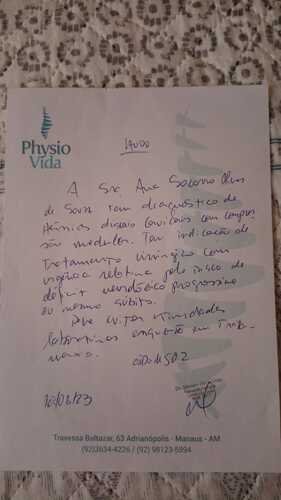 Physio
Vida
LAUDO
A Sra Ana Socorro
de Souza tem diagnóstico de
Hérnias discais cervicais com compres
são medular. Tem indicação de
tratamento cirúrgico com
urgência relativa pelo risco de
déficit neurológico progressivo
ou mesmo súbito.
Deve evitar atividades
laborativas enquanto em trata
mento.
CID M50.2
23
Travessa Baltazar, 63 Adrianópolis - Manaus - AM
(92)3634-4226 / (92) 98123-5994